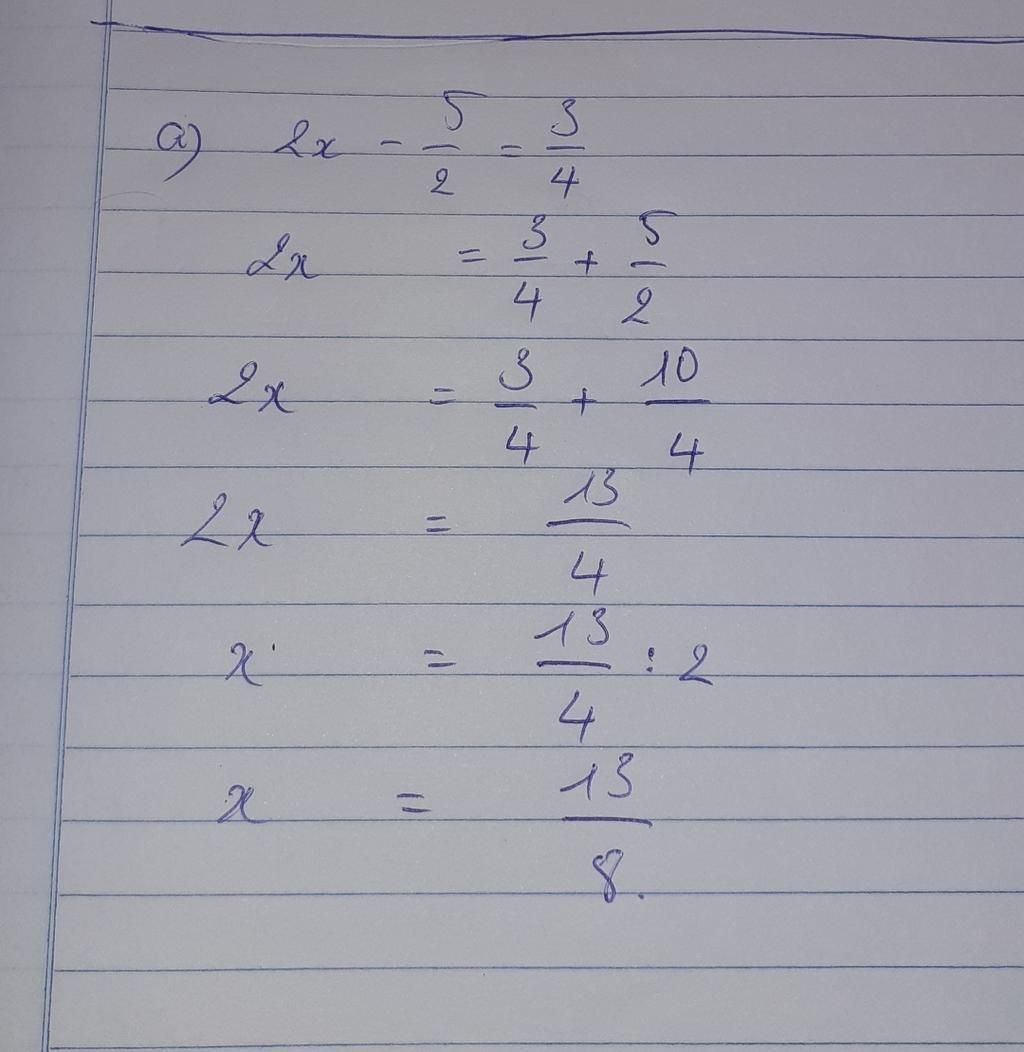 a) 2x - 5/2 = 3/4
2x = 3/4 + 5/2
2x = 3/4 + 10/4
2x = 13/4
x = 13/4 : 2
x = 13/8.